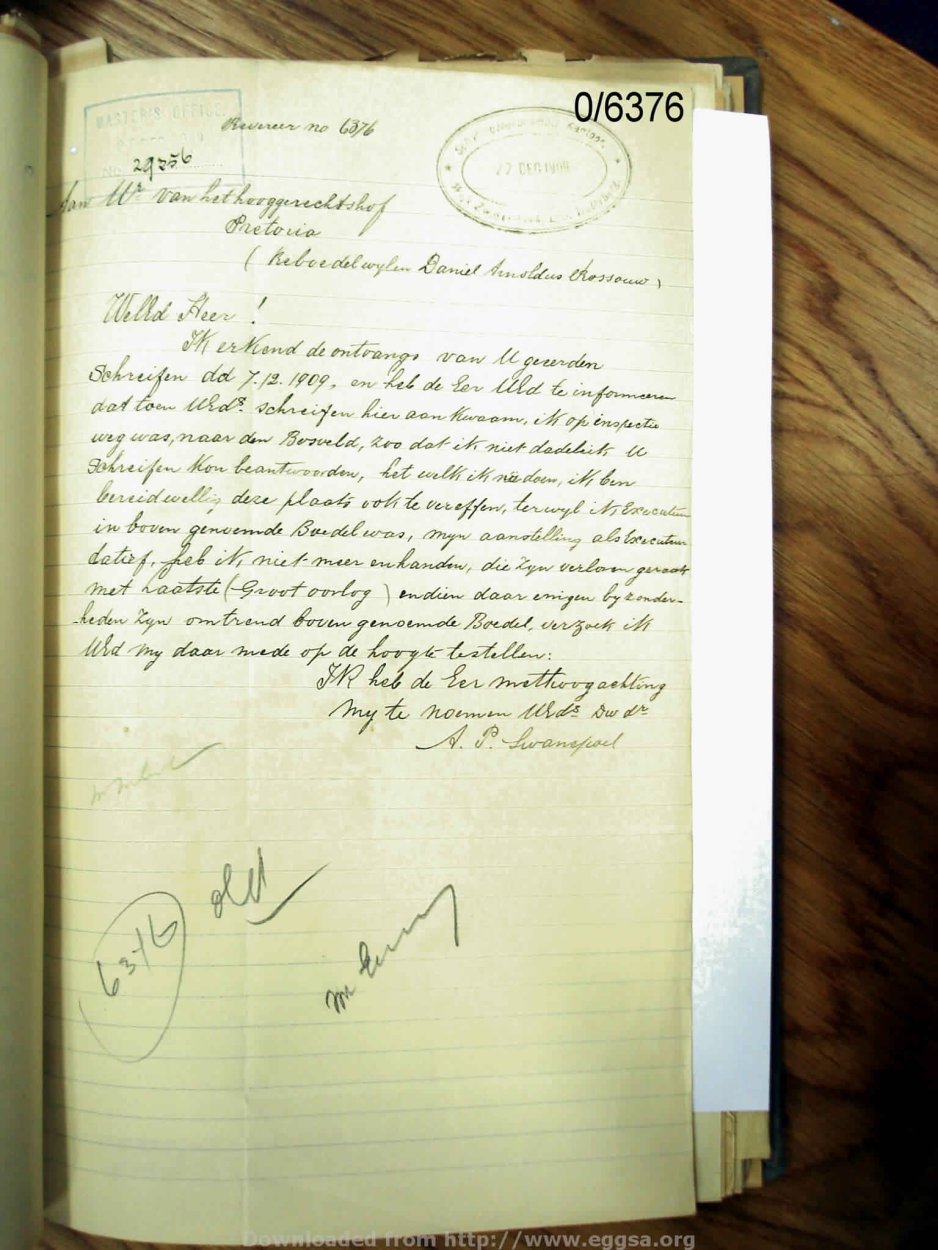 0/6376
MASTER'S OFFICE
Revereer no 6376
29256
22 DEC 1909
Aan Mr van het hooggerechtshof
Pretoria
( Reboedel wylen Daniel Arnoldus Rossouw )
WelEd Heer !
Ik erkend de ontvangs van U geeerden
Schreifen dd 7.12.1909, en heb de Eer UEd te informeeren
dat toen UEds schreifen hier aan kwaam, ik op inspectie
weg was, naar den Bosveld, zoo dat ik niet dadeleik U
Schreifen kon beantwoorden, het welk ik nu doen, ik ben
bereid wellig deze plaats ook te vereffen, terwyl ik Executeur
in boven genoemde Boedel was, myn aanstelling als Executeur
datief, heb ik niet meer en handen, die zyn verloren geraak
met Laatste (Groot oorlog) endien daar enigen byzonder-
heden zyn omtrend boven genoemde Boedel, verzoek ik
UEd my daar mede op de hoogte te stellen:
Ik heb de Eer met hoogachting
My te noemen UEds Dw dr
A. P. Swanepoel
6376
Downloaded from http://www.eggsa.org